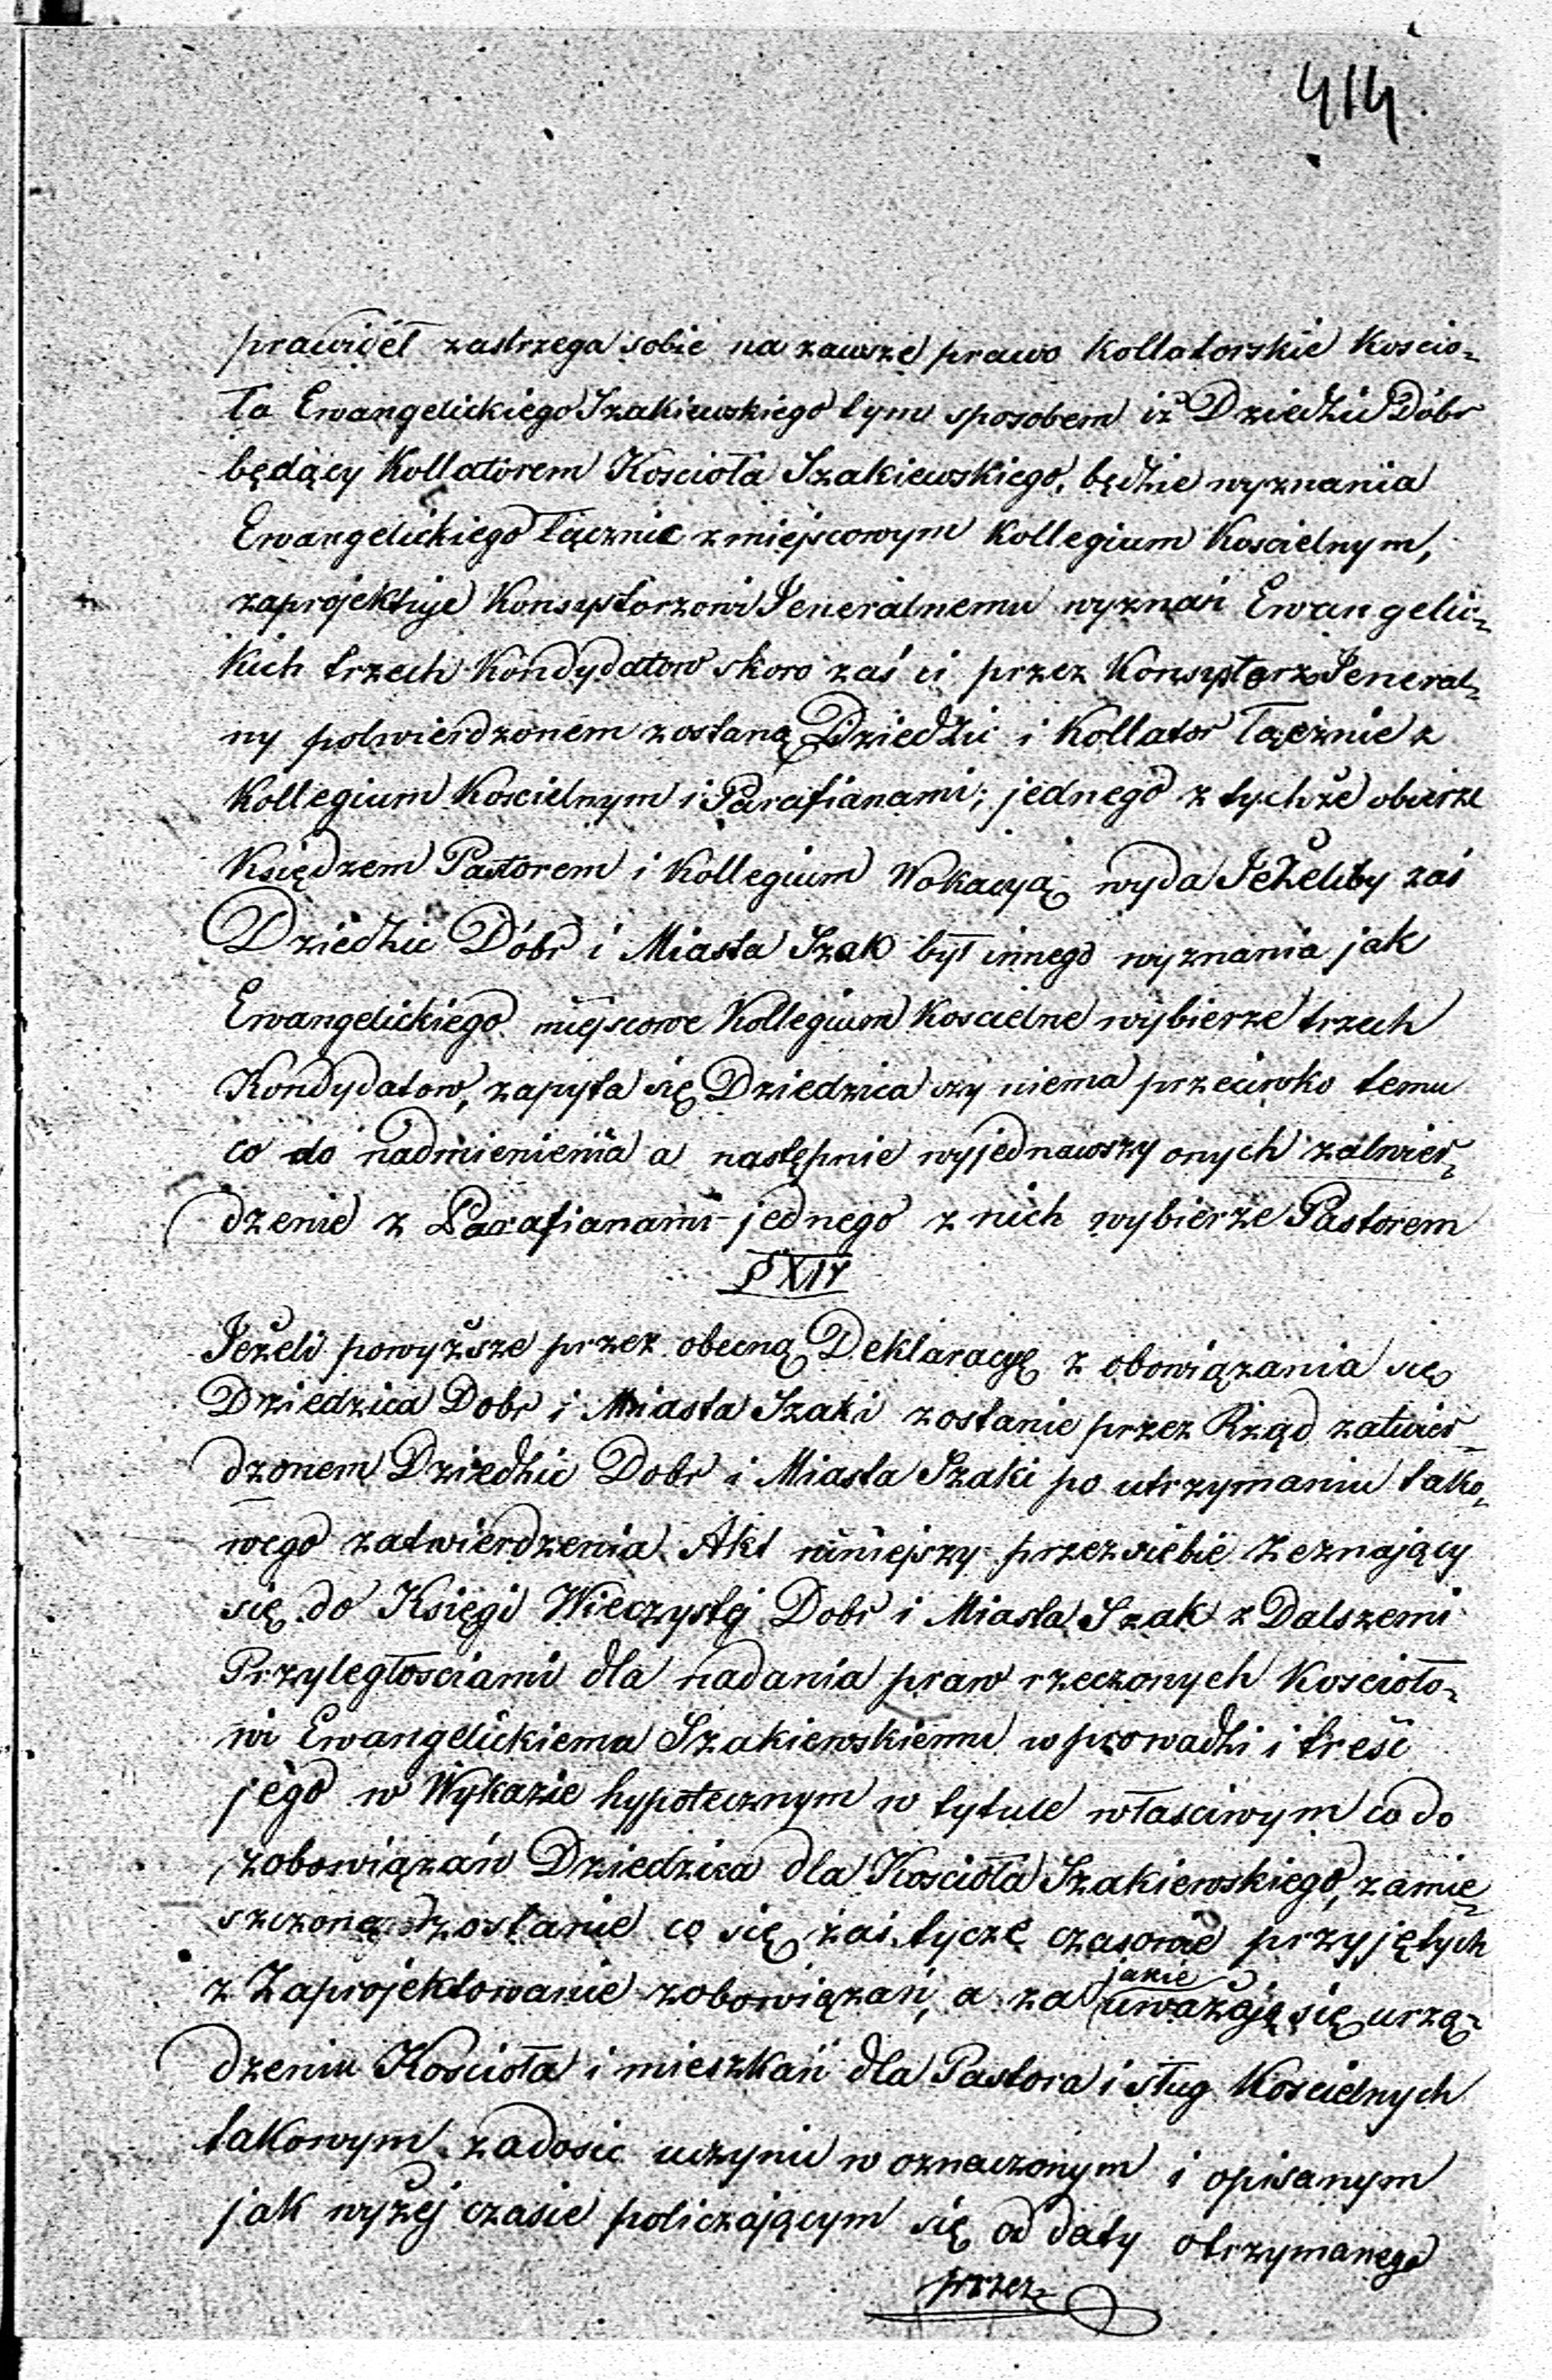 414.
prawideł zastrzega sobie na zawsze prawo Kollatorskie Koscio-
ła Ewangelickiego Szakiewskiego tym sposobem iż Dziedzic Dóbr
będący Kollatorem Koscioła Szakiewskiego, będzie wyznania
Ewangelickiego łącznie z miejscowym Kollegium Koscielnym,
zaprojektuje Konsystorzowi Jeneralnemu wyznań Ewangelic-
kich trzech Kondydatow skoro zaś ci przez Konsystorz Jeneral-
ny potwierdzonem zostaną Dziedzic i Kollator łącznie z
Kollegium Koscielnym i Parafianami; jednego z tychże obierze
Księdzem Pastorem i Kollegium Wokacyą wyda Jeżeliby zaś
Dziedzic Dóbr i Miasta Szak był innego wyznania jak
Ewangelickiego miejscowe Kollegium Koscielne wybierze trzech
Kondydatow, zapyta się Dziedzica czy niema przeciwko temu
co do nadmienienia a następnie wyjednawszy onych zatwier-
dzenie z Parafianami jednego z nich wybierze Pastorem
§ XIV
Jeżeli powyższe przez obecną Deklaracyę zobowiązania się
Dziedzica Dobr i Miasta Szaki zostanie przez Rząd zatwier-
dzonem Dziedzic Dobr i Miasta Szaki po utrzymaniu tako-
wego zatwierdzenia Akt niniejszy przez siebie zeznający
się do Księgi Wieczystej Dobr i Miasta Szak z Dalszemi
Przyległosciami dla nadania praw rzeczonych Koscioło-
wi Ewangelickiema Szakiewskiemu wprowadzi i treść
jego w Wykazie hypotecznym w tytule własciwym co do
zobowiązań Dziedzica dla Koscioła Szakiewskiego, zamie-
szczoną zostanie co się zaś tycze czasowie przyjętych
z Zaprojektowanie zobowiązań, a za jakie uważają się urzą-
dzenia Koscioła i mieszkań dla Pastora i sług Koscielnych
takowym zadosic uczynić w oznaczonym i opisanym
jak wyżej czasie policzającym się od daty otrzymanego
przez